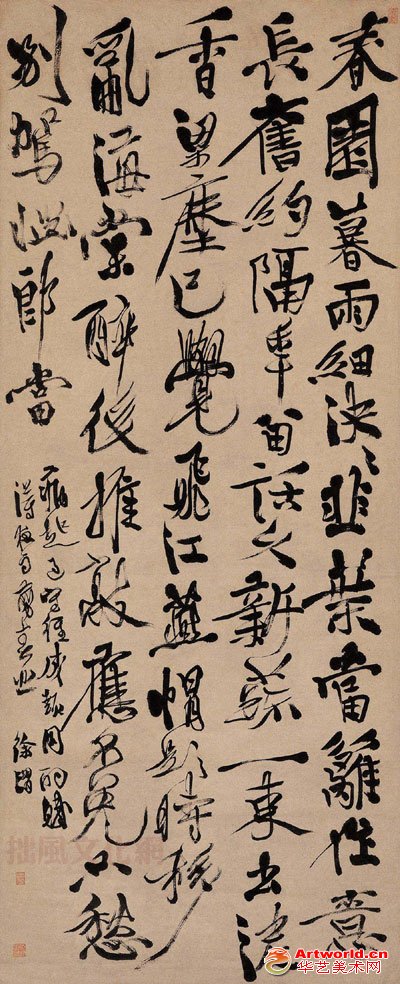 春園暮雨細泱〻韭葉當籬作意
長舊約隔年留話久新蔬一束出泥
香梁塵已覺飛江燕帽影時移
亂海棠醉後推敲應不免只愁
別駕惱郎當
得夜雨翦春韭
徐渭
拙風文化網
Artworld.cn
华艺美术网